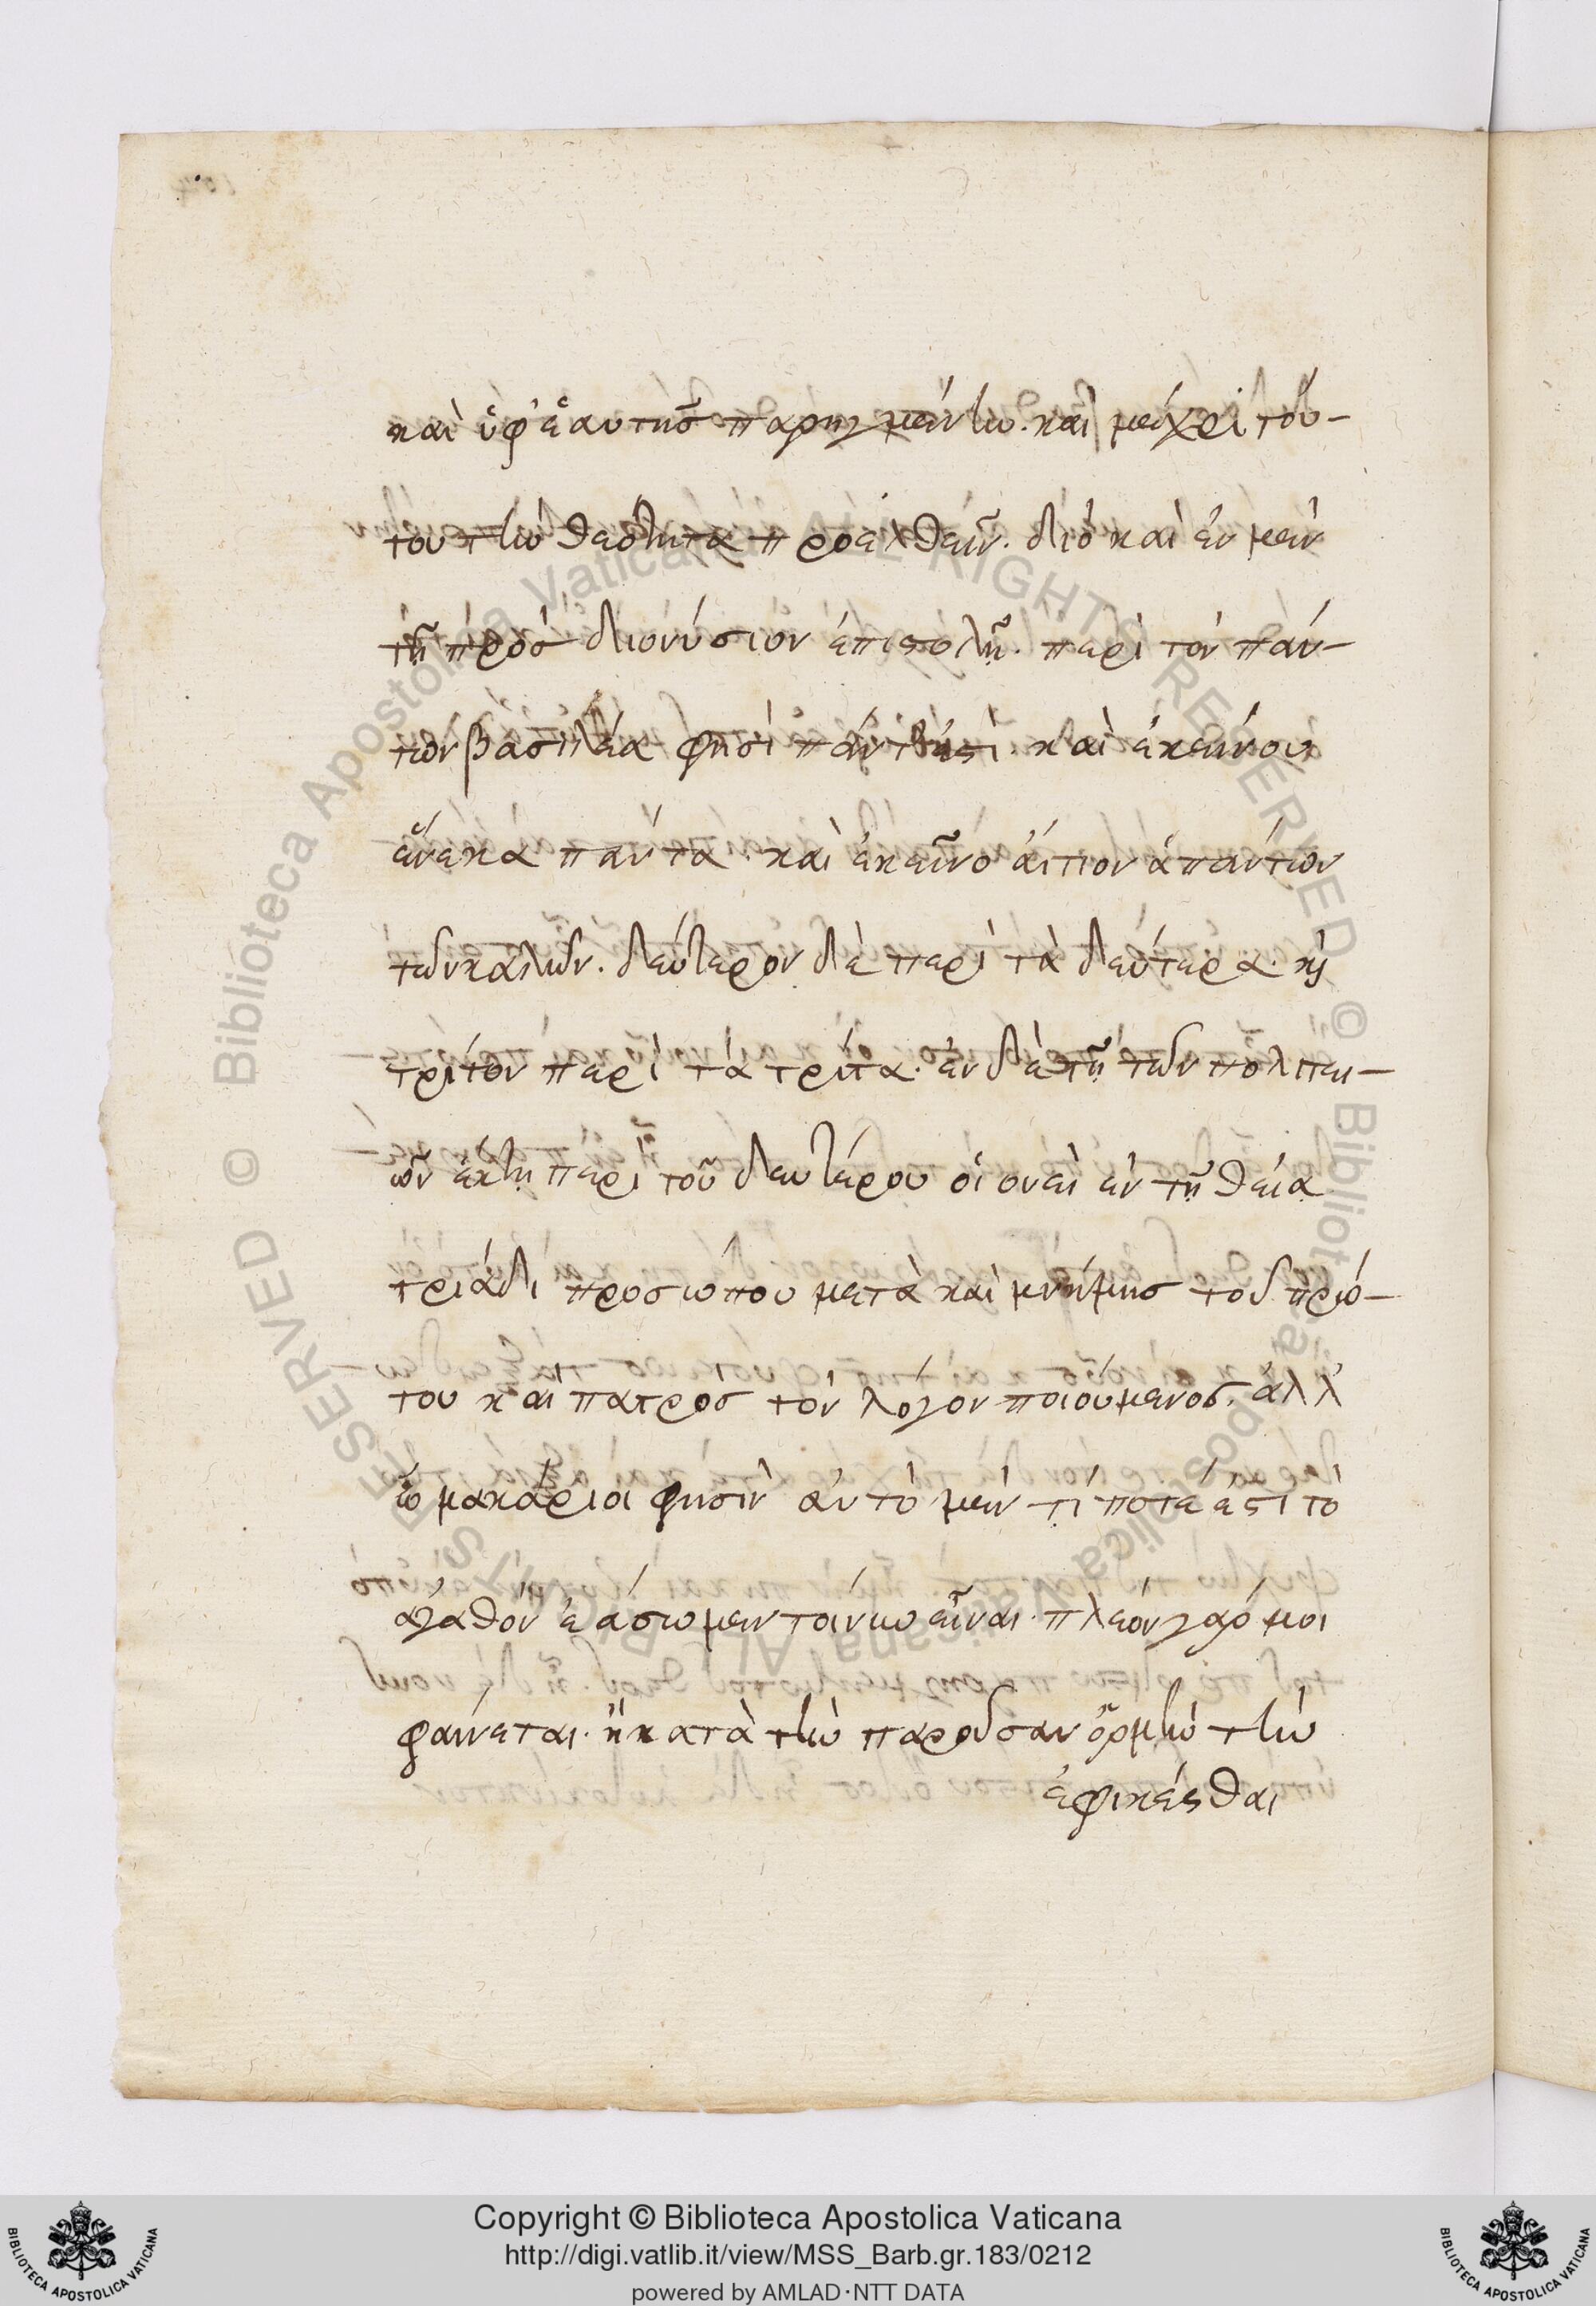 καὶ ὑφ' ἑαυτῆς παρηγμένην. καὶ μέχρι τού-
του τὴν θεότητα προελθεῖν. διὸ καὶ ἐν μὲν
τῇ πρὸς διονύσιον ἐπιστολῇ. περὶ τὸν πάν-
των βασιλέα φησὶ πάντ' ἐστὶ. καὶ ἐκείνου
ἕνεκα πάντα. καὶ ἐκεῖνο αἴτιον ἁπάντων
τῶν καλῶν. δεύτερον δὲ περὶ τὰ δεύτερα. καὶ
τρίτον περὶ τὰ τρίτα. ἐν δὲ τῇ τῶν πολιτει-
ῶν ἕκτῃ περὶ τοῦ δευτέρου οἱονεὶ ἐν τῇ θεία
τριάδι προσώπου μετὰ καὶ μνήμης τοῦ πρώ-
του καὶ πατρὸς τὸν λόγον ποιούμενος. ἀλλ'
ὦ μακάριοι φησὶν αὐτὸ μὲν τί ποτε ἐστὶ τὸ
ἀγαθὸν ἐάσωμεν τονῦν εἶναι. πλέον γάρ μοι
φαίνεται. ἢ κατὰ τὴν παροῦσαν ὁρμὴν τὴν
ἐφικέσθαι
Copyright © Biblioteca Apostolica Vaticana
http://digi.vatlib.it/view/MSS_Barb.gr.183/0212
powered by AMLAD·NTT DATA